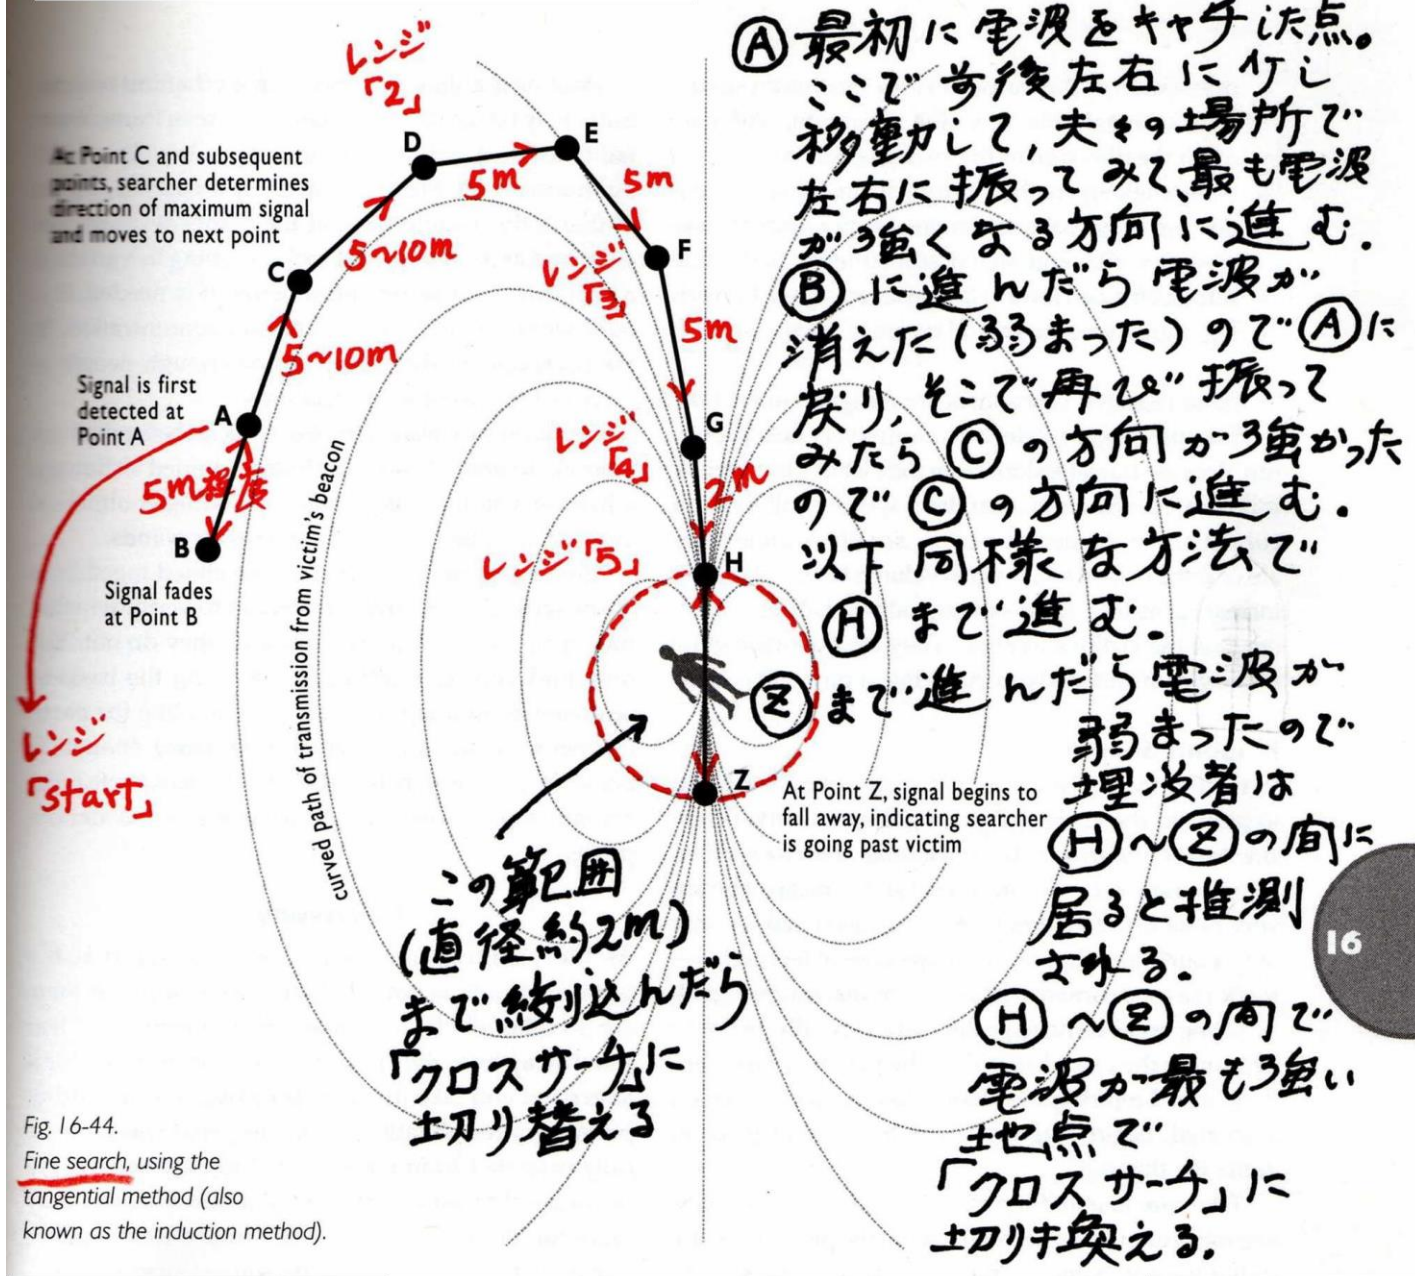 レンジ
「2」
At Point C and subsequent
points, searcher determines
direction of maximum signal
and moves to next point
D
E
5m
5m
C
5~10m
レンジ
「3」
F
5~10m
5m
Signal is first
detected at
Point A
A
5m程度
B
Signal fades
at Point B
レンジ
「start」
curved path of transmission from victim's beacon
レンジ
「4」
G
2m
レンジ「5」
H
Z
At Point Z, signal begins to
fall away, indicating searcher
is going past victim
この範囲
(直径約2m)
まで絞り込んだら
「クロスサーチ」に
切り替える
Ⓐ最初に電波をキャチした点。
ここで前後左右に少し
移動して,夫々の場所で
左右に振ってみて最も電波
が強くなる方向に進む.
Ⓑに進んだら電波が
消えた(弱まった)のでⒶに
戻り,そこで再び振って
みたらⒸの方向が強かった
のでⒸの方向に進む.
以下同様な方法で
Ⓗまで進む.
Ⓩまで進んだら電波が
弱まったので
埋没者は
Ⓗ~Ⓩの間に
居ると推測
される.
Ⓗ~Ⓩの間で
電波が最も強い
地点で
「クロスサーチ」に
切り換える.
16
Fig. 16-44.
Fine search, using the
tangential method (also
known as the induction method).